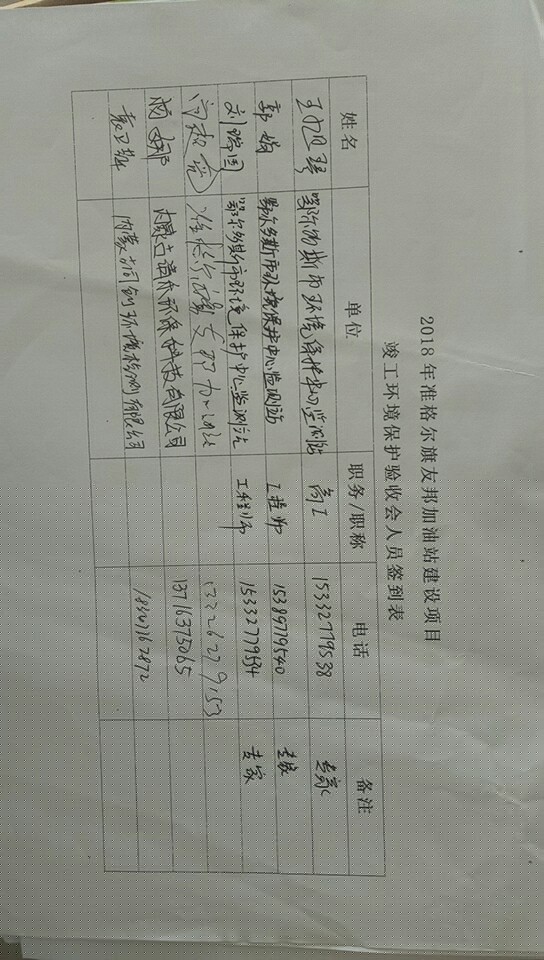 2018年准格尔旗友邦加油站建设项目
竣工环境保护验收会人员签到表
姓名 单位 职务/职称 电话 备注
王旭琴 鄂尔多斯市环境保护中心监测站 高工 15332779538 专家
郭娟 鄂尔多斯市环境保护中心监测站 工程师 15389779540 专家
刘瑞国 鄂尔多斯市环境保护中心监测站 工程师 15332779594 专家
准格尔旗友邦加油站
内蒙古 环保科技有限公司 13716375065
内蒙古 环境检测有限公司